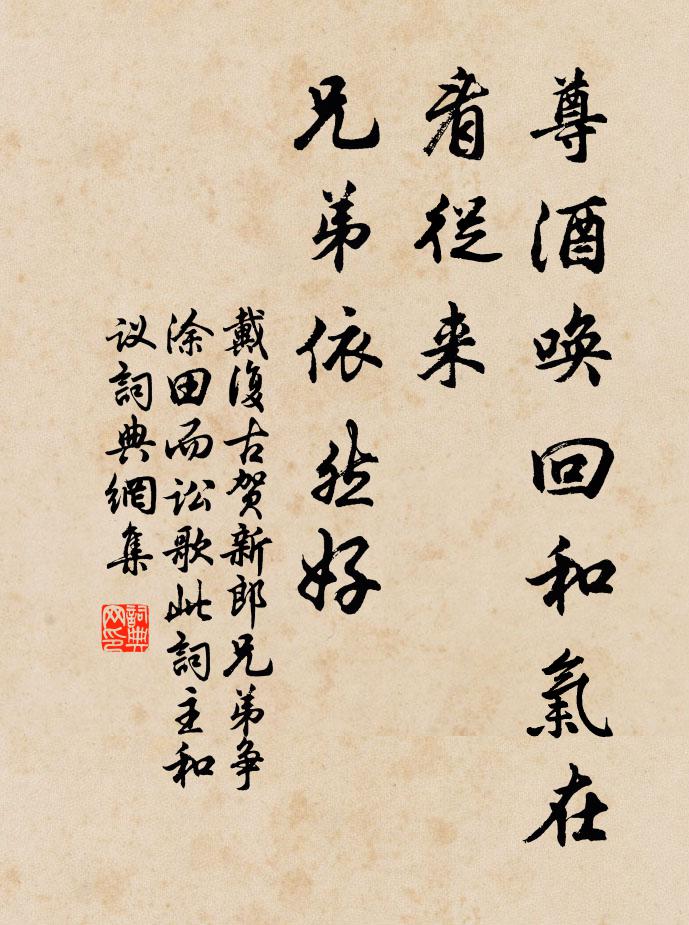 尊酒唤回和氣在
看從来
兄弟依然好
戴復古贺新郎兄弟争
涂田而讼歌此詞主和
议詞典網集
詞典网印